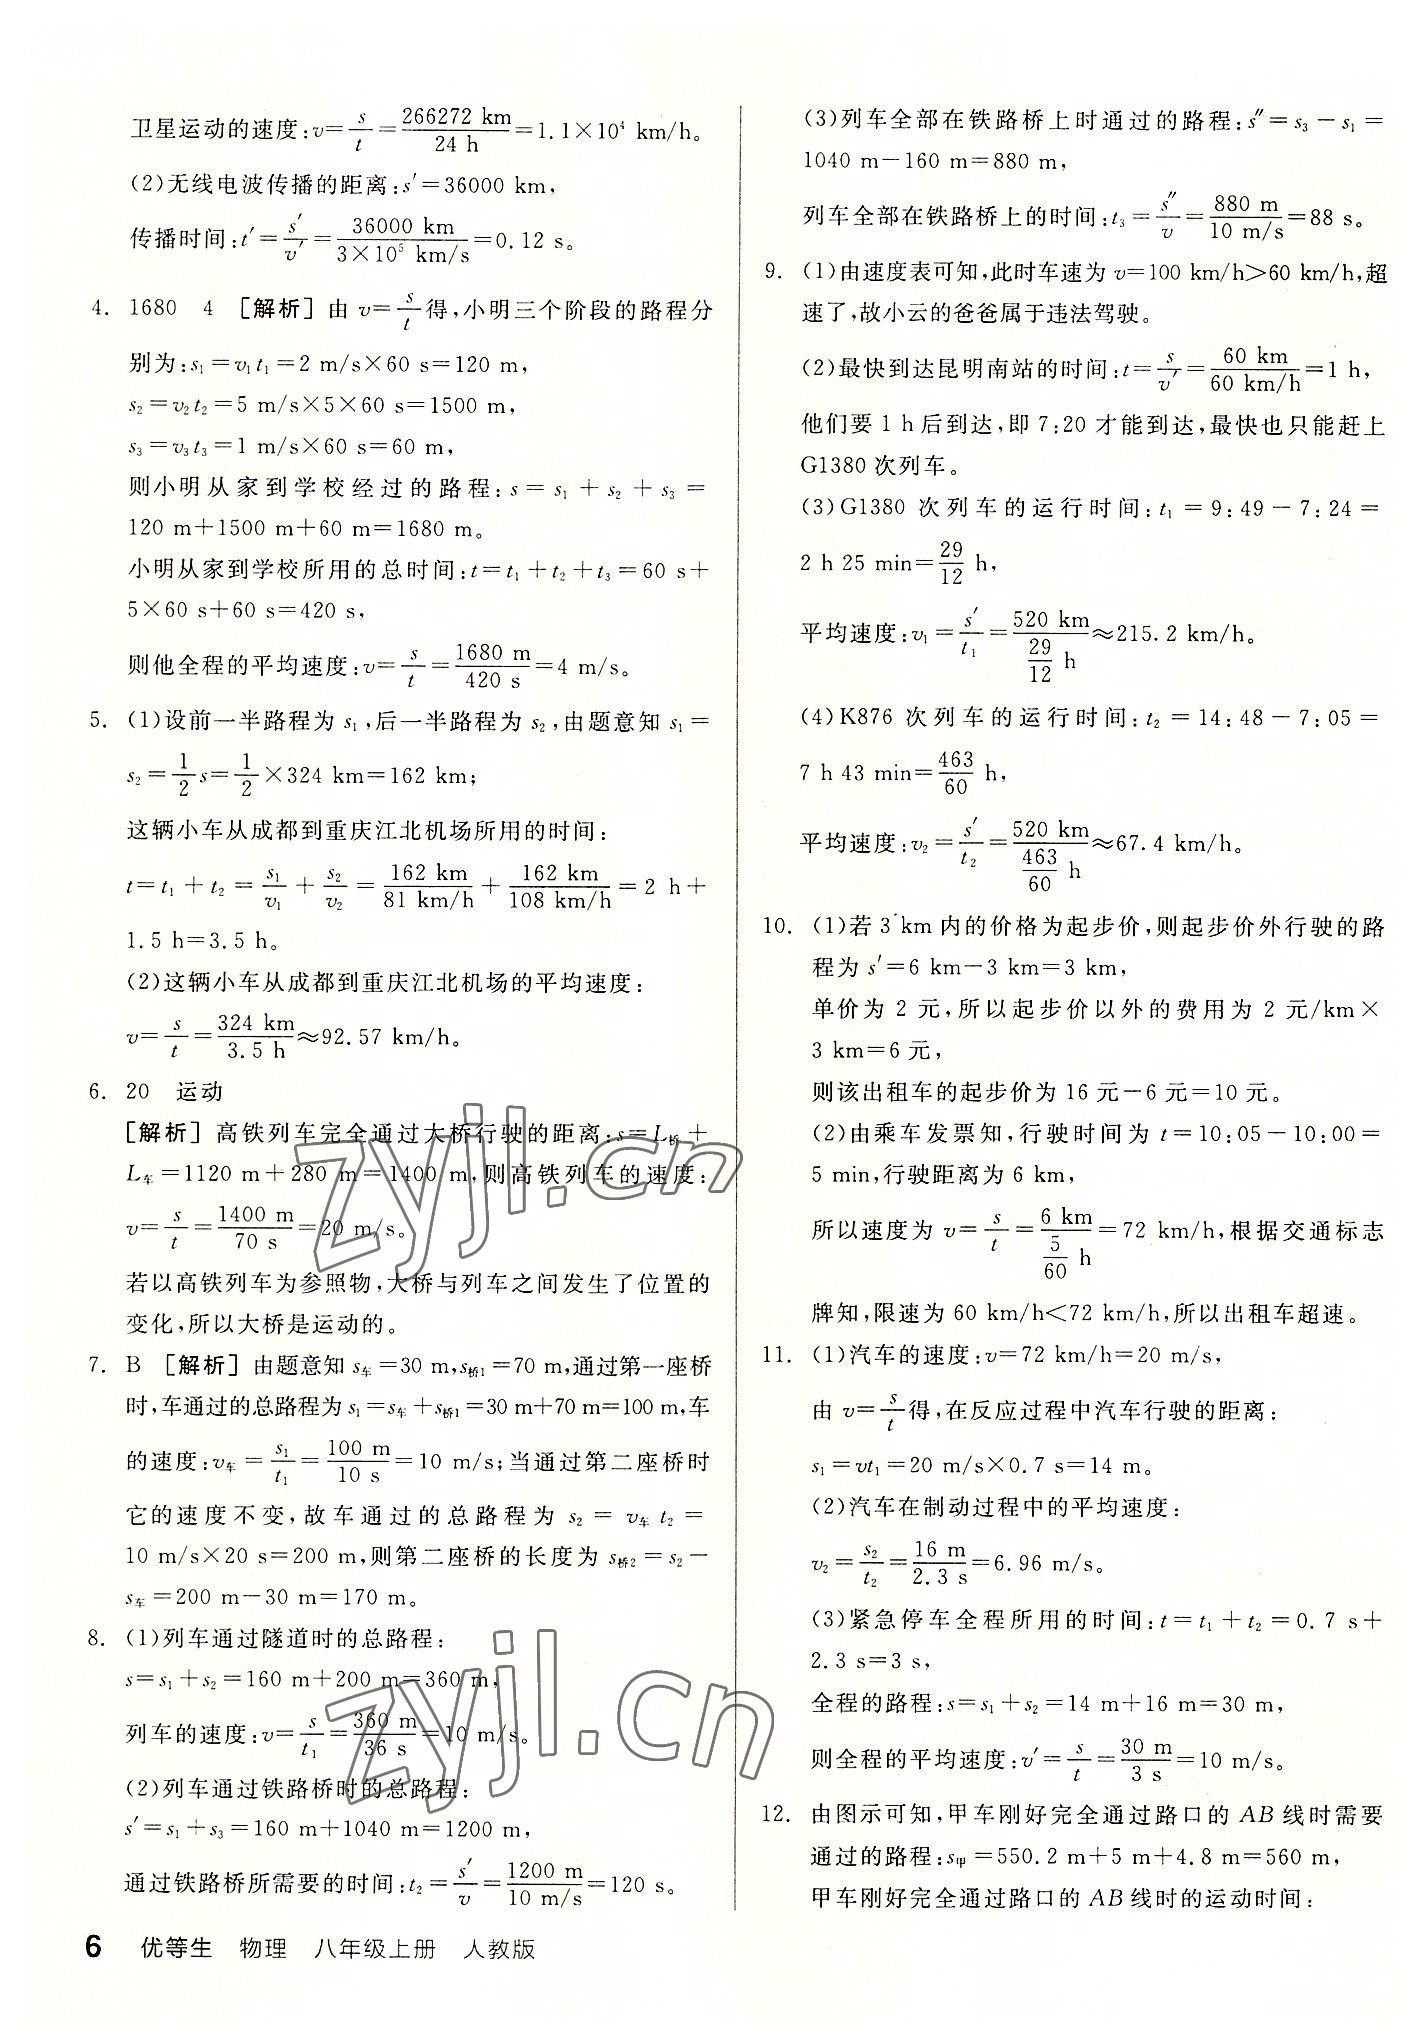 卫星运动的速度:v=s/t=266272 km/24 h=1.1×10⁴ km/h。
(2)无线电波传播的距离:s′=36000 km,
传播时间:t′=s′/v′=36000 km/3×10⁵ km/s=0.12 s。
4. 1680 4 [解析]由 v=s/t得,小明三个阶段的路程分
别为:s₁=v₁t₁=2 m/s×60 s=120 m,
s₂=v₂t₂=5 m/s×5×60 s=1500 m,
s₃=v₃t₃=1 m/s×60 s=60 m,
则小明从家到学校经过的路程:s=s₁+s₂+s₃=
120 m+1500 m+60 m=1680 m。
小明从家到学校所用的总时间:t=t₁+t₂+t₃=60 s+
5×60 s+60 s=420 s,
则他全程的平均速度:v=s/t=1680 m/420 s=4 m/s。
5. (1)设前一半路程为 s₁,后一半路程为 s₂,由题意知 s₁=
s₂=1/2s=1/2×324 km=162 km;
这辆小车从成都到重庆江北机场所用的时间:
t=t₁+t₂=s₁/v₁+s₂/v₂=162 km/81 km/h+162 km/108 km/h=2 h+
1.5 h=3.5 h。
(2)这辆小车从成都到重庆江北机场的平均速度:
v=s/t=324 km/3.5 h≈92.57 km/h。
6. 20 运动
[解析]高铁列车完全通过大桥行驶的距离:s=L桥+
L车=1120 m+280 m=1400 m,则高铁列车的速度:
v=s/t=1400 m/70 s=20 m/s。
若以高铁列车为参照物,大桥与列车之间发生了位置的
变化,所以大桥是运动的。
7. B [解析]由题意知 s车=30 m,s桥1=70 m,通过第一座桥
时,车通过的总路程为 s₁=s车+s桥1=30 m+70 m=100 m,车
的速度:v车=s₁/t₁=100 m/10 s=10 m/s;当通过第二座桥时
它的速度不变,故车通过的总路程为 s₂=v车t₂=
10 m/s×20 s=200 m,则第二座桥的长度为 s桥2=s₂-
s车=200 m-30 m=170 m。
8. (1)列车通过隧道时的总路程:
s=s₁+s₂=160 m+200 m=360 m,
列车的速度:v=s/t₁=360 m/36 s=10 m/s。
(2)列车通过铁路桥时的总路程:
s′=s₁+s₃=160 m+1040 m=1200 m,
通过铁路桥所需要的时间:t₂=s′/v=1200 m/10 m/s=120 s。
(3)列车全部在铁路桥上时通过的路程:s″=s₃-s₁=
1040 m-160 m=880 m,
列车全部在铁路桥上的时间:t₃=s″/v=880 m/10 m/s=88 s。
9. (1)由速度表可知,此时车速为 v=100 km/h>60 km/h,超
速了,故小云的爸爸属于违法驾驶。
(2)最快到达昆明南站的时间:t=s/v′=60 km/60 km/h=1 h,
他们要 1 h后到达,即 7:20 才能到达,最快也只能赶上
G1380 次列车。
(3)G1380 次列车的运行时间:t₁=9:49-7:24=
2 h 25 min=29/12 h,
平均速度:v₁=s′/t₁=520 km/(29/12 h)≈215.2 km/h。
(4)K876 次列车的运行时间:t₂=14:48-7:05=
7 h 43 min=463/60 h,
平均速度:v₂=s′/t₂=520 km/(463/60 h)≈67.4 km/h。
10. (1)若 3 km 内的价格为起步价,则起步价外行驶的路
程为 s′=6 km-3 km=3 km,
单价为 2 元,所以起步价以外的费用为 2 元/km×
3 km=6 元,
则该出租车的起步价为 16 元-6 元=10 元。
(2)由乘车发票知,行驶时间为 t=10:05-10:00=
5 min,行驶距离为 6 km,
所以速度为 v=s/t=6 km/(5/60 h)=72 km/h,根据交通标志
牌知,限速为 60 km/h<72 km/h,所以出租车超速。
11. (1)汽车的速度:v=72 km/h=20 m/s,
由 v=s/t得,在反应过程中汽车行驶的距离:
s₁=vt₁=20 m/s×0.7 s=14 m。
(2)汽车在制动过程中的平均速度:
v₂=s₂/t₂=16 m/2.3 s=6.96 m/s。
(3)紧急停车全程所用的时间:t=t₁+t₂=0.7 s+
2.3 s=3 s,
全程的路程:s=s₁+s₂=14 m+16 m=30 m,
则全程的平均速度:v′=s/t=30 m/3 s=10 m/s。
12. 由图示可知,甲车刚好完全通过路口的 AB 线时需要
通过的路程:s甲=550.2 m+5 m+4.8 m=560 m,
甲车刚好完全通过路口的 AB 线时的运动时间:
6 优等生 物理 八年级上册 人教版
zyjl.cn
zyjl.cn